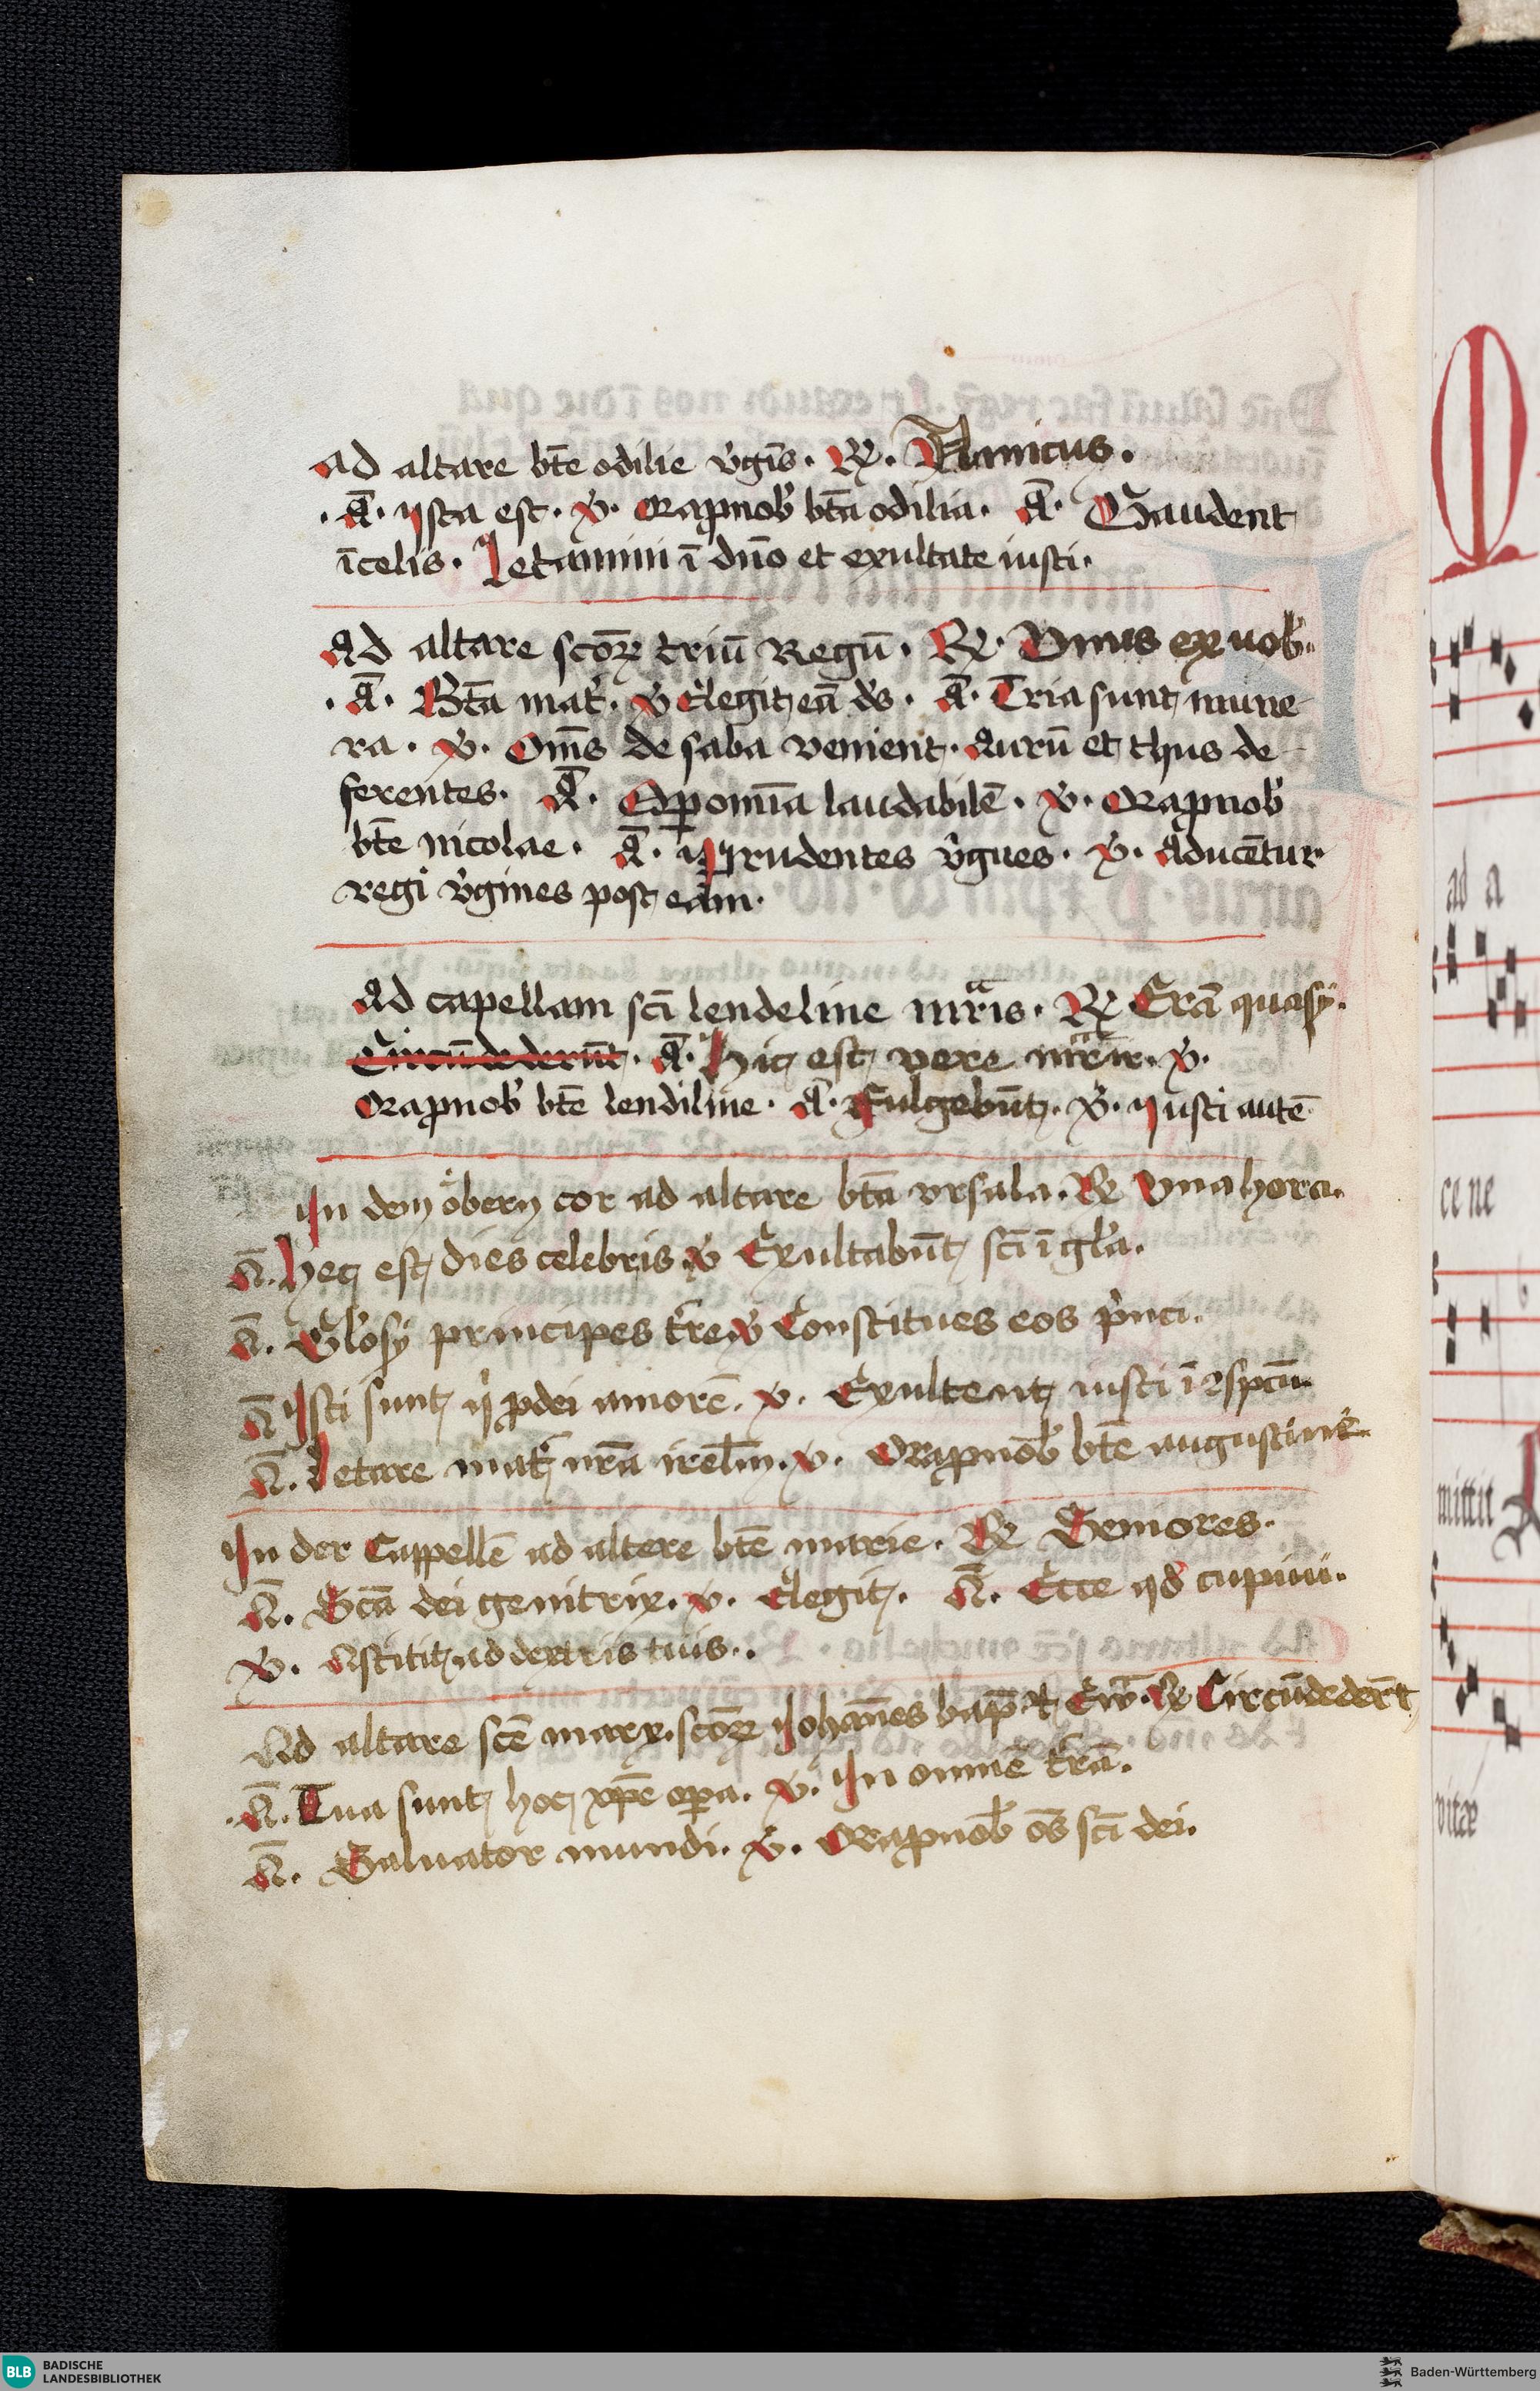 ad altare bt̄e odilie v̓gīs. R̷. Amicus.
. A̅. ysta est. v̷. Orapnob̓ bt̄a odilia. A̅. Gaudent
ī celis. Letamini ī dn̄o et exultate iusti.
Ad altare sco̅ꝝ triū Regū. R̷. Vnus ex uob̓.
. A̅. Bt̄a mat̓. v̷ Elegit eā ds̓. A̅. Tria sunt mune
ra. v̷. Om̄s de saba venient. Aurū et thus de
ferentes. A̅. O ꝑ om̄ia laudabilē. v̷. Orapnob̓
bt̄e nicolae. A̅. Prudentes v̓gīes. v̷. Aducētur
regi v̓gines post eam.
Ad capellam sc̄i lendeline mr̄is. R̷ Erāt quasy.
Circūdederūt. A̅. Hic est vere mr̄tir. v̷.
Orapnob̓ bt̄e lendiline. A̅. Fulgebūt. v̷. yusti autē
In dem öbern cor ad altare bt̄a vrsula. R̷ Vna hora.
A̅. Hec est dies celebris. v̷ Exultabūt sc̄i ī gl̓a.
A̅. Gl̓osy principes t̓re v̷ Constitues eos p̓nci.
A̅ Isti sunt q̓ ꝓ dei amorē. v̷. Exultent iusti ī ꝯspcū.
A̅. Letare mat̓ nr̄a irel̄m. v̷. Orapnob̓ bt̄e augustine.
In der Cappellē ad altere bt̄e marie. R̷ Seniores.
A̅. Sc̄a dei genitrix. v̷. Elegit. A̅. Ecce qd̓ cupiui.
v̷. Astitit ad dextris tuis..
Ad altare sc̄e marx. sco̅ꝝ Johānes bap̄ et Ew̄. R̷ Circūdeder̄t
. A̅. Tua sunt hec xp̄e oꝑa. v̷. In omnē t̓rā.
A̅. Saluator mundi. v̷. Orapnob̓ os̄ sc̄i dei.
ad a
ce ne
mittit
vitae
BLB BADISCHE
LANDESBIBLIOTHEK
Baden-Württemberg